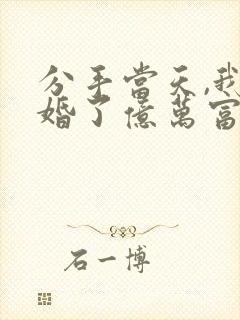 分手當天,我
婚了億萬富
石一博